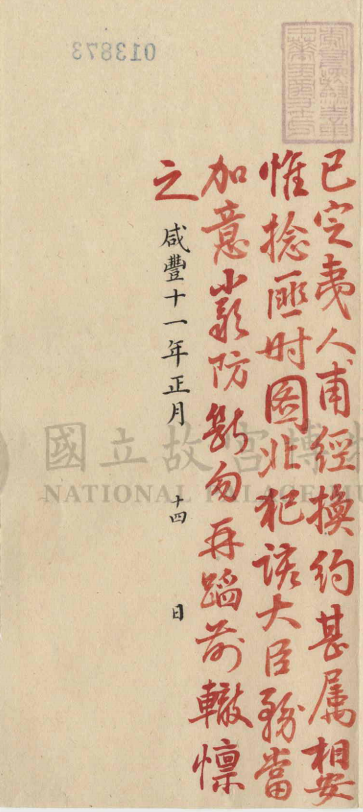 已定夷人甫經換約甚属相安
惟捻匪时图北犯該大臣務當
加意小心防勦勿再蹈前轍懔
之
咸豐十一年正月 十四 日
013873
國立故宮博物
NATIONAL PALACE MU